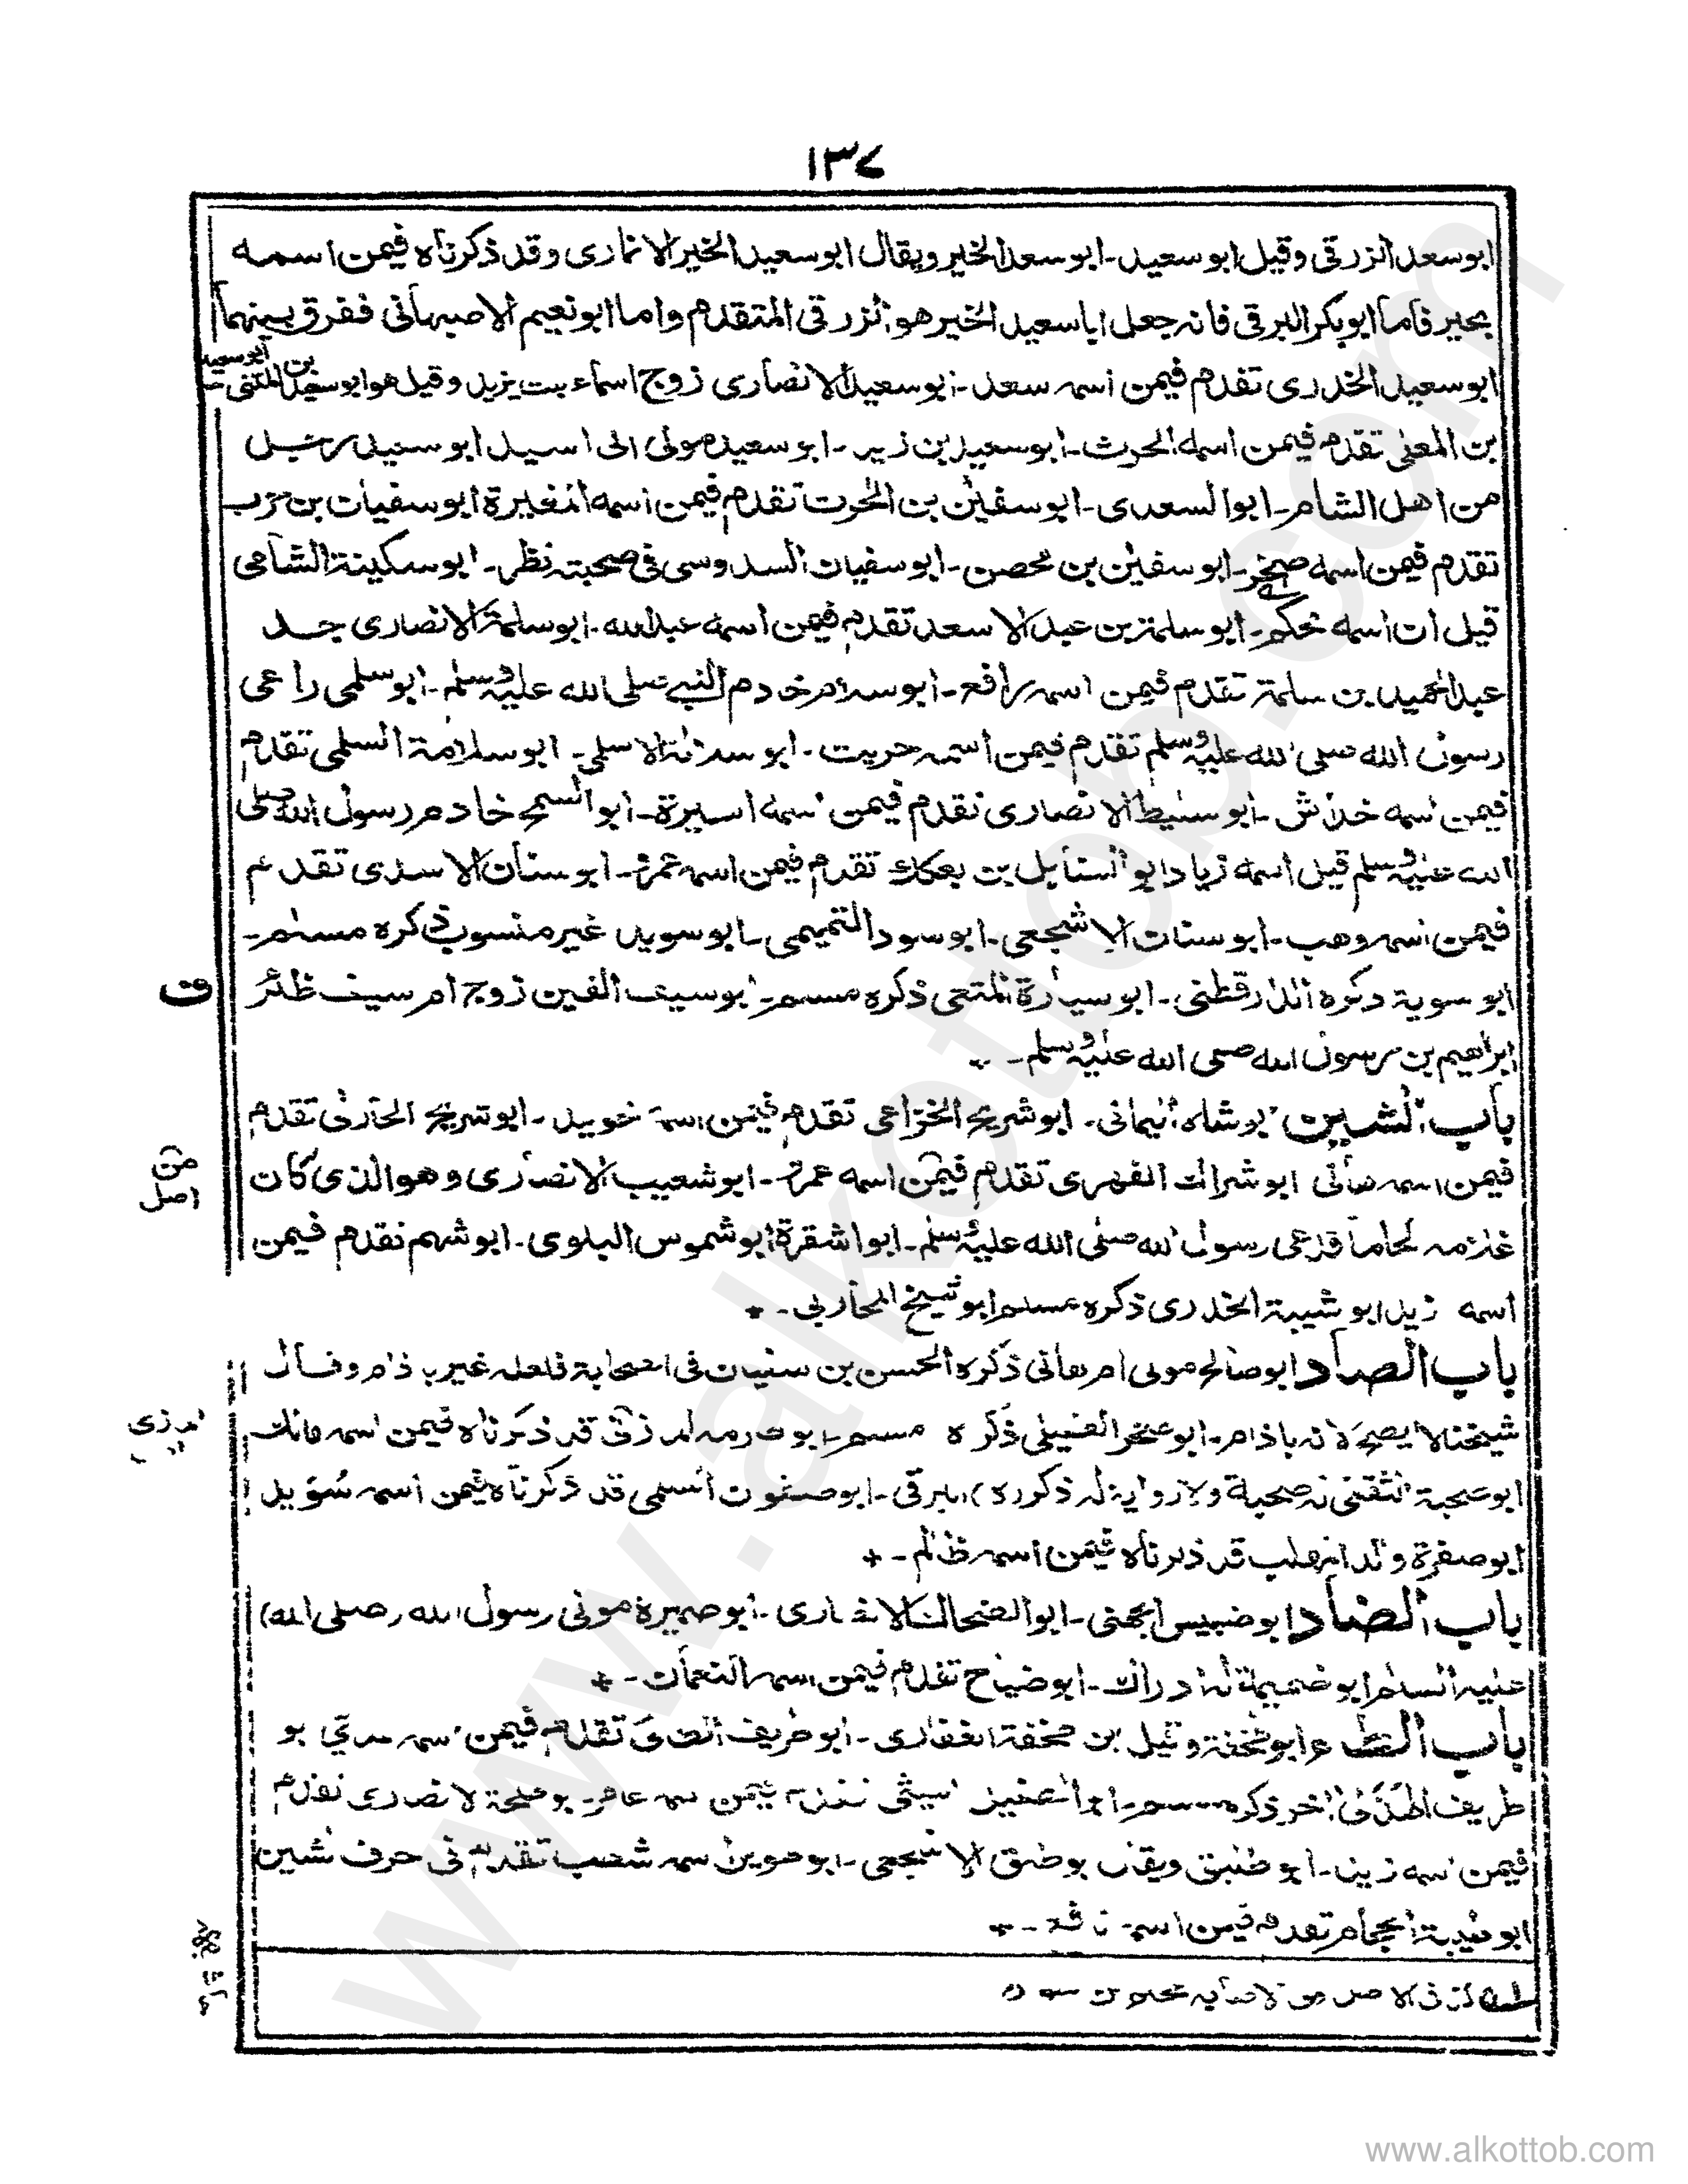 ١٣٧
ابوسعد الزرقي وقيل ابو سعيد۔ ابوسعد الخير ويقال ابوسعيد الخير الانماري وقد ذكرناه فيمن اسمه
بحير فاما ابوبكر البرقي فانه جعل اباسعيد الخير هو الزرقي المتقدم واما ابونعيم الاصبهاني ففرق بينهما
ابوسعيد الخدري تقدم فيمن اسمه سعد۔ ابوسعيد الانصاري زوج اسماء بنت يزيد وقيل هو ابوسعيد
بن المعلى تقدم فيمن اسمه الحرث۔ ابوسعيد بن زيد۔ ابو سعيد مولى ابى اسيد ابو سعيد رجل
من اهل الشام۔ ابوالسعدى۔ ابوسفيٰن بن الحرث تقدم فيمن اسمه المغيرة ابوسفيان بن حرب
تقدم فيمن اسمه صخر۔ ابوسفيٰن بن محصن۔ ابوسفيان السدوسى فى صحبته نظر۔ ابوسكينة الشامى
قيل ان اسمه محكم۔ ابوسلمة بن عبد الاسعد تقدم فيمن اسمه عبدالله۔ ابوسلمة الانصارى جد
عبدالحميد بن سلمة تقدم فيمن اسمه رافع۔ ابوسلام خادم النبي صلى الله عليه وسلم۔ ابوسلمى راعى
رسول الله صلى الله عليه وسلم تقدم فيمن اسمه حريث۔ ابوسلالة الاسلمى۔ ابوسلامة السلمى تقدم
فيمن اسمه خداش۔ ابوسليط الانصارى تقدم فيمن اسمه اسيرة۔ ابوالسمح خادم رسول الله صلى
الله عليه وسلم قيل اسمه زياد ابوالسنابل بن بعكك تقدم فيمن اسمه عمرو۔ ابوسنان الاسدى تقدم
فيمن اسمه وهب۔ ابوسنان الاشجعى۔ ابوسود التميمى۔ ابوسويد غير منسوب ذكره مسلم۔
ابو سوية ذكره الدارقطنى۔ ابوسيارة المتعى ذكره مسلم۔ ابوسيف القين زوج ام سيف ظئر
ابراهيم بن رسول الله صلى الله عليه وسلم۔
باب الشين ابوشاه اليمانى۔ ابوشريح الخزاعى تقدم فيمن اسمه خويلد۔ ابوشريح الحارثى تقدم
فيمن اسمه هانى ابوشراك الفهرى تقدم فيمن اسمه عمرو۔ ابوشعيب الانصارى وهو الذى كان
غلامه لحاما فدعى رسول الله صلى الله عليه وسلم۔ ابواشقرة ابوشموس البلوى۔ ابوشهم تقدم فيمن
اسمه زيد ابوشيبة الخدرى ذكره مسلم ابوشيخ المحاربى۔
باب الصاد ابوصالح مولى ام هانى ذكره الحسن بن سفيان فى الصحابة فلعله غير باذام وقال
شيخنا لا يصح انه باذام۔ ابوصخر العقيلى ذكره مسلم۔ ابوصرمه قد ذكرناه فيمن اسمه مالك
الثقفى له صحبة ولا رواية له ذكره البرقى۔ ابوصفوان السلمى قد ذكرناه فيمن اسمه سويد
ابوصفرة والد المهلب قد ذكرناه فيمن اسمه ظالم۔
باب الضاد ابوضبيس الجهنى۔ ابوالضحاك الانصارى۔ ابوضميرة مولى رسول الله (صلى الله)
عليه السلام ابوضميمة له ادراك۔ ابوضياح تقدم فيمن اسمه النعمان۔
باب الطاء ابوطخفة وقيل بن طخفة الغفارى۔ ابوطريف تقدم فيمن اسمه عدي ابو
طريف الهذلى اخر ذكره مسلم۔ ابوالطفيل الليثى تقدم فيمن اسمه عامر۔ ابوطلحة الانصارى تقدم
فيمن اسمه زيد۔ ابو طليق ويقال ابوطلق الاشجعى۔ ابوطويل اسمه شطب تقدم فى حرف الشين
ابوطيبة الحجام تقدم فيمن اسمه نافع۔
ابوسعيد
بن
ف
من
اصل
www.alkottob.com